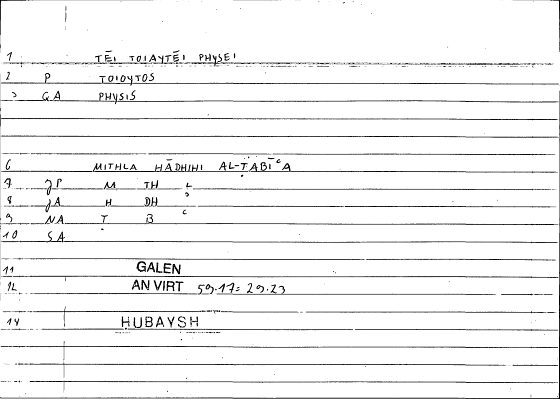 1 TĒI TOIAYTĒI PHYSEI
2 P TOIOYTOS
3 GA PHYSIS
6 MITHLA HĀDHIHI AL-ṬABĪʿA
7 JP M TH L
8 JA H DH
9 NA Ṭ B ʿ
10 SA
11 GALEN
12 AN VIRT 59.17 = 29.23
14 HUBAYSH